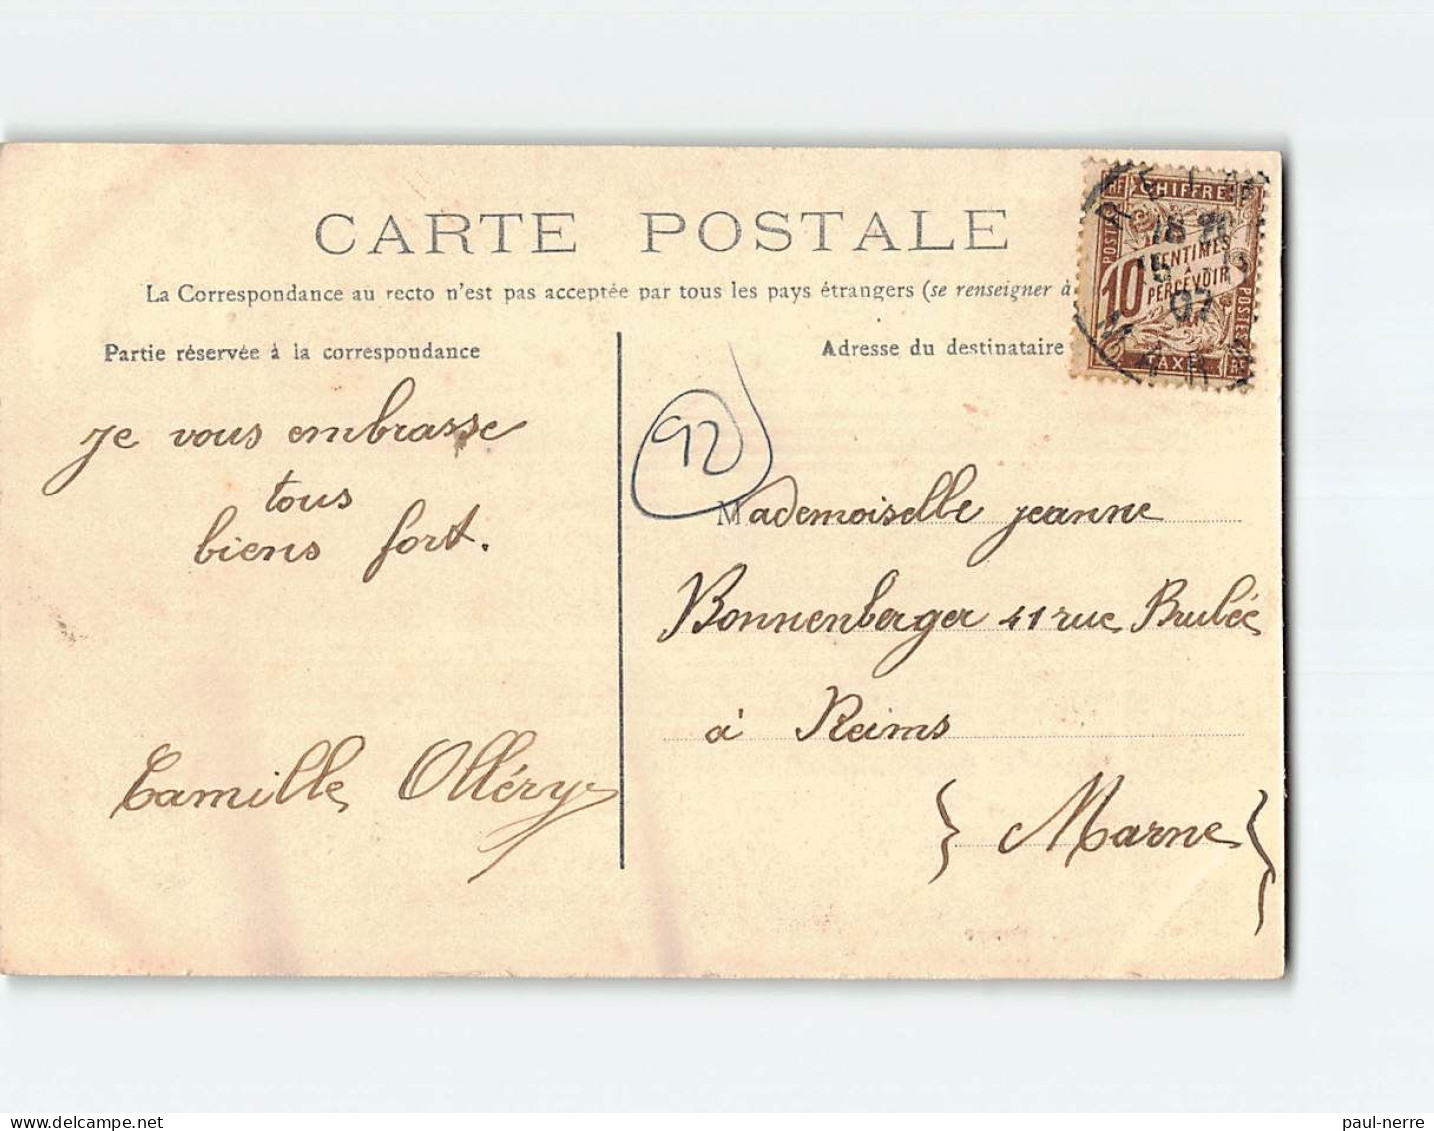 CARTE POSTALE
La Correspondance au recto n'est pas acceptée par tous les pays étrangers (se renseigner à
Partie réservée à la correspondance
Adresse du destinataire
RF CHIFFRE
POSTES
10 CENTIMES
À
PERCEVOIR
POSTES
TAXE RF
07
92
je vous embrasse
tous
biens fort.
Camille Olléry
Mademoiselle jeanne
Bonnenberger 41 rue Brulée
à Reims
} Marne {
paul-nerre